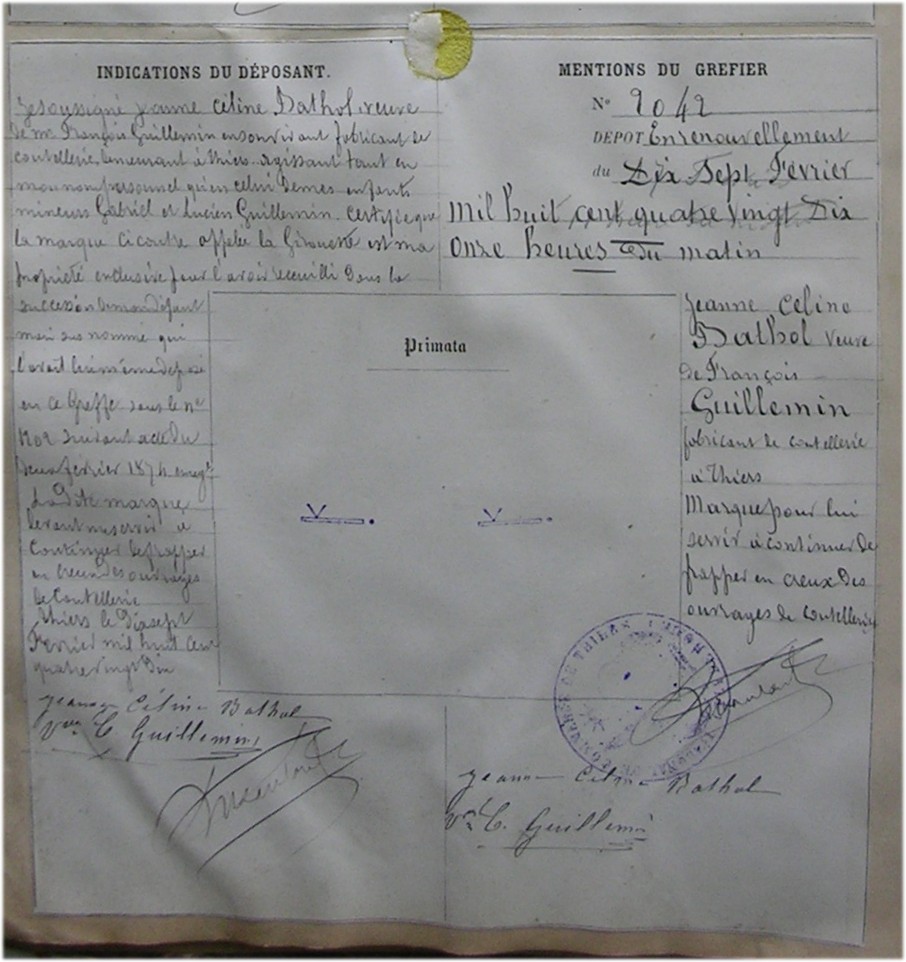 INDICATIONS DU DÉPOSANT.
Je soussigné Jeanne Céline Bathol veuve
de Mr François Guillemin en son vivant fabricant de
coutellerie demeurant à Thiers agissant tant en
mon nom personnel qu'en celui de mes enfants
mineurs Gabriel et Lucien Guillemin certifie que
la marque ci contre appelée la Girouette est ma
propriété exclusive pour l'avoir recueilli dans la
succession de mon défunt
mari sus nommé qui
l'avait lui même déposé
en ce Greffe sous le no
suivant acte du
deux février 1874 enregt
La dite marque
devant me servir à
continuer de frapper
en creux des ouvrages
de Coutellerie
Thiers le dix sept
Février mil huit cent
quatre vingt dix
Jeanne Céline Bathol
Vve C. Guillemin
MENTIONS DU GREFIER
N° 2042
DEPOT En renouvellement
du Dix Sept Fevrier
Mil huit cent quatre vingt Dix
onze heures du matin
Primata
Jeanne Celine
Bathol veuve
de François
Guillemin
fabricant de coutellerie
à Thiers
Marque pour lui
servir à continuer de
frapper en creux des
ouvrages de coutellerie
Jeanne Céline Bathol
Vve C. Guillemin